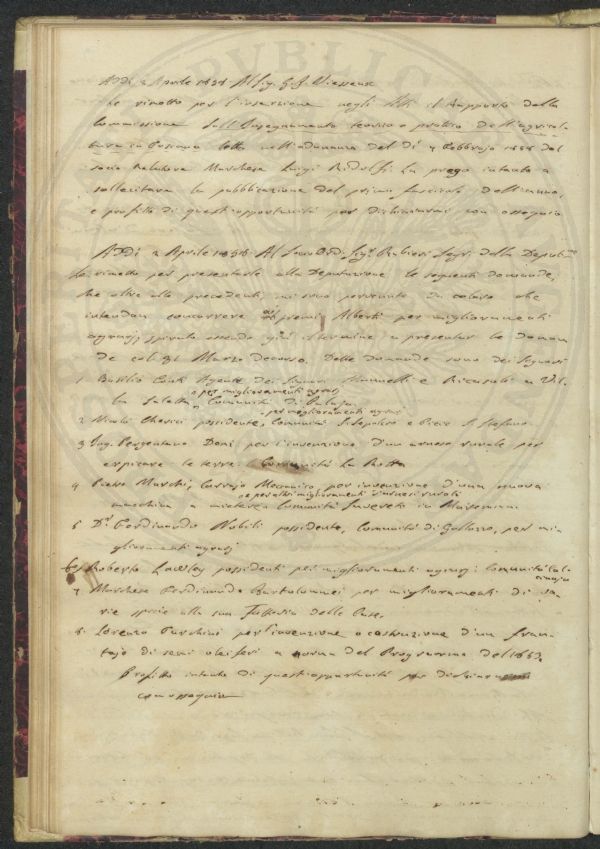 Addì 2 Aprile 1858 Al Sig. G. P. Vieusseux
Le rimetto per l'inserzione negli Atti il Rapporto della
Commissione sull'Insegnamento teorico e pratico dell'agricol-
tura in Toscana letto nell'adunanza del Dì 7 Febbrajo 1858 dal
socio Relatore Marchese Luigi Ridolfi. La prego intanto a
sollecitare la pubblicazione del primo fascicolo dell'anno,
e profitto di quest'opportunità per dichiararmi con ossequio
Addì 2 Aprile 1858 Al Sig. Rubieri Segr. della Deputne
Le rimetto per presentarle alla Deputazione le seguenti domande,
che oltre alle precedenti, mi sono pervenute da coloro che
intendon concorrere ai premi Alberti per miglioramenti
agrarj, spirato essendo già il termine a presentar le doman
de col 31 Marzo decorso. Dette domande sono dei Signori
1 Basilio Conti Agente dei Signori e Ricasoli a Vil-
la per miglioramenti agrarj, Comunità di
2 Nicolò Cherici possidente, per miglioramenti agrarj Comunità S. Sepolcro e Pieve S. Stefano
3 Ing. Pergentino Doni per l'invenzione d'un arnese rurale per
le terre. Comunità La Rotta
4 Pietro Marchi, Meccanico, per invenzione d'una nuova
macchina a mietere e per altri miglioramenti d'arnesi rurali Comunità Suvereto in Maremma
5 Dr Ferdinando Nobili possidente, Comunità di Galluzzo, per mi-
glioramenti agrarj
6 Roberto Lawley possidenti per miglioramenti agrarj: Comunità Cal-
cinaja
7 Marchese Ferdinando Bartolommei per miglioramenti di va-
rie specie alla sua Fattoria delle Case,
8 Lorenzo Turchini per l'invenzione o costruzione d'un fran-
tojo di semi oleiferi a norma del Programma del 1853.
Profitto intanto di quest'opportunità per dichiararmi
con ossequio